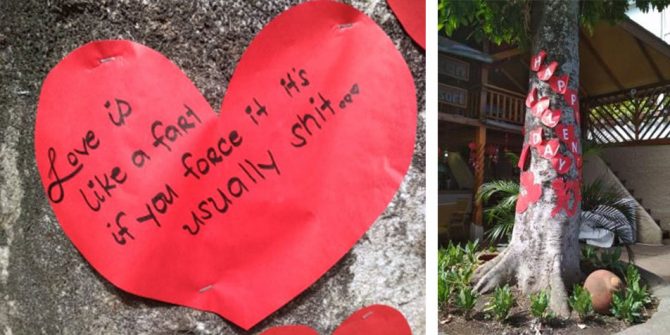 Love is
like a fart
if you force it it's
usually shit...
HAPP
DAY